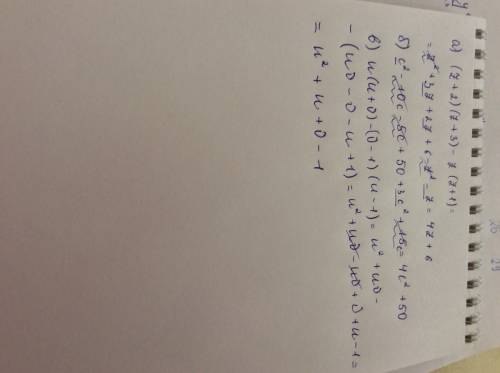 а) (z+2)(z+3) - z(z+1) =
= z² + 3z + 2z + 6 - z² - z = 4z + 6
б) c² - 10c - 5c + 50 + 3c² + 15c = 4c² + 50
в) u(u+v) - (v-1)(u-1) = u² + uv -
- (uv - v - u + 1) = u² + uv - uv + v + u - 1 =
= u² + u + v - 1